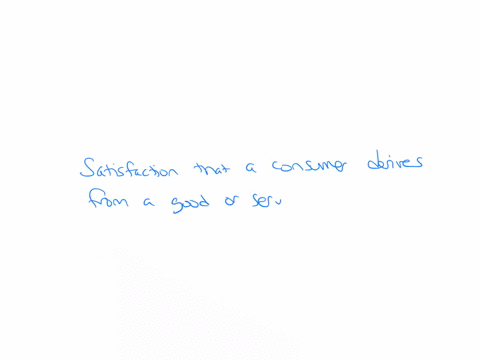 Satisfaction that a consumer derives
from a good or serv